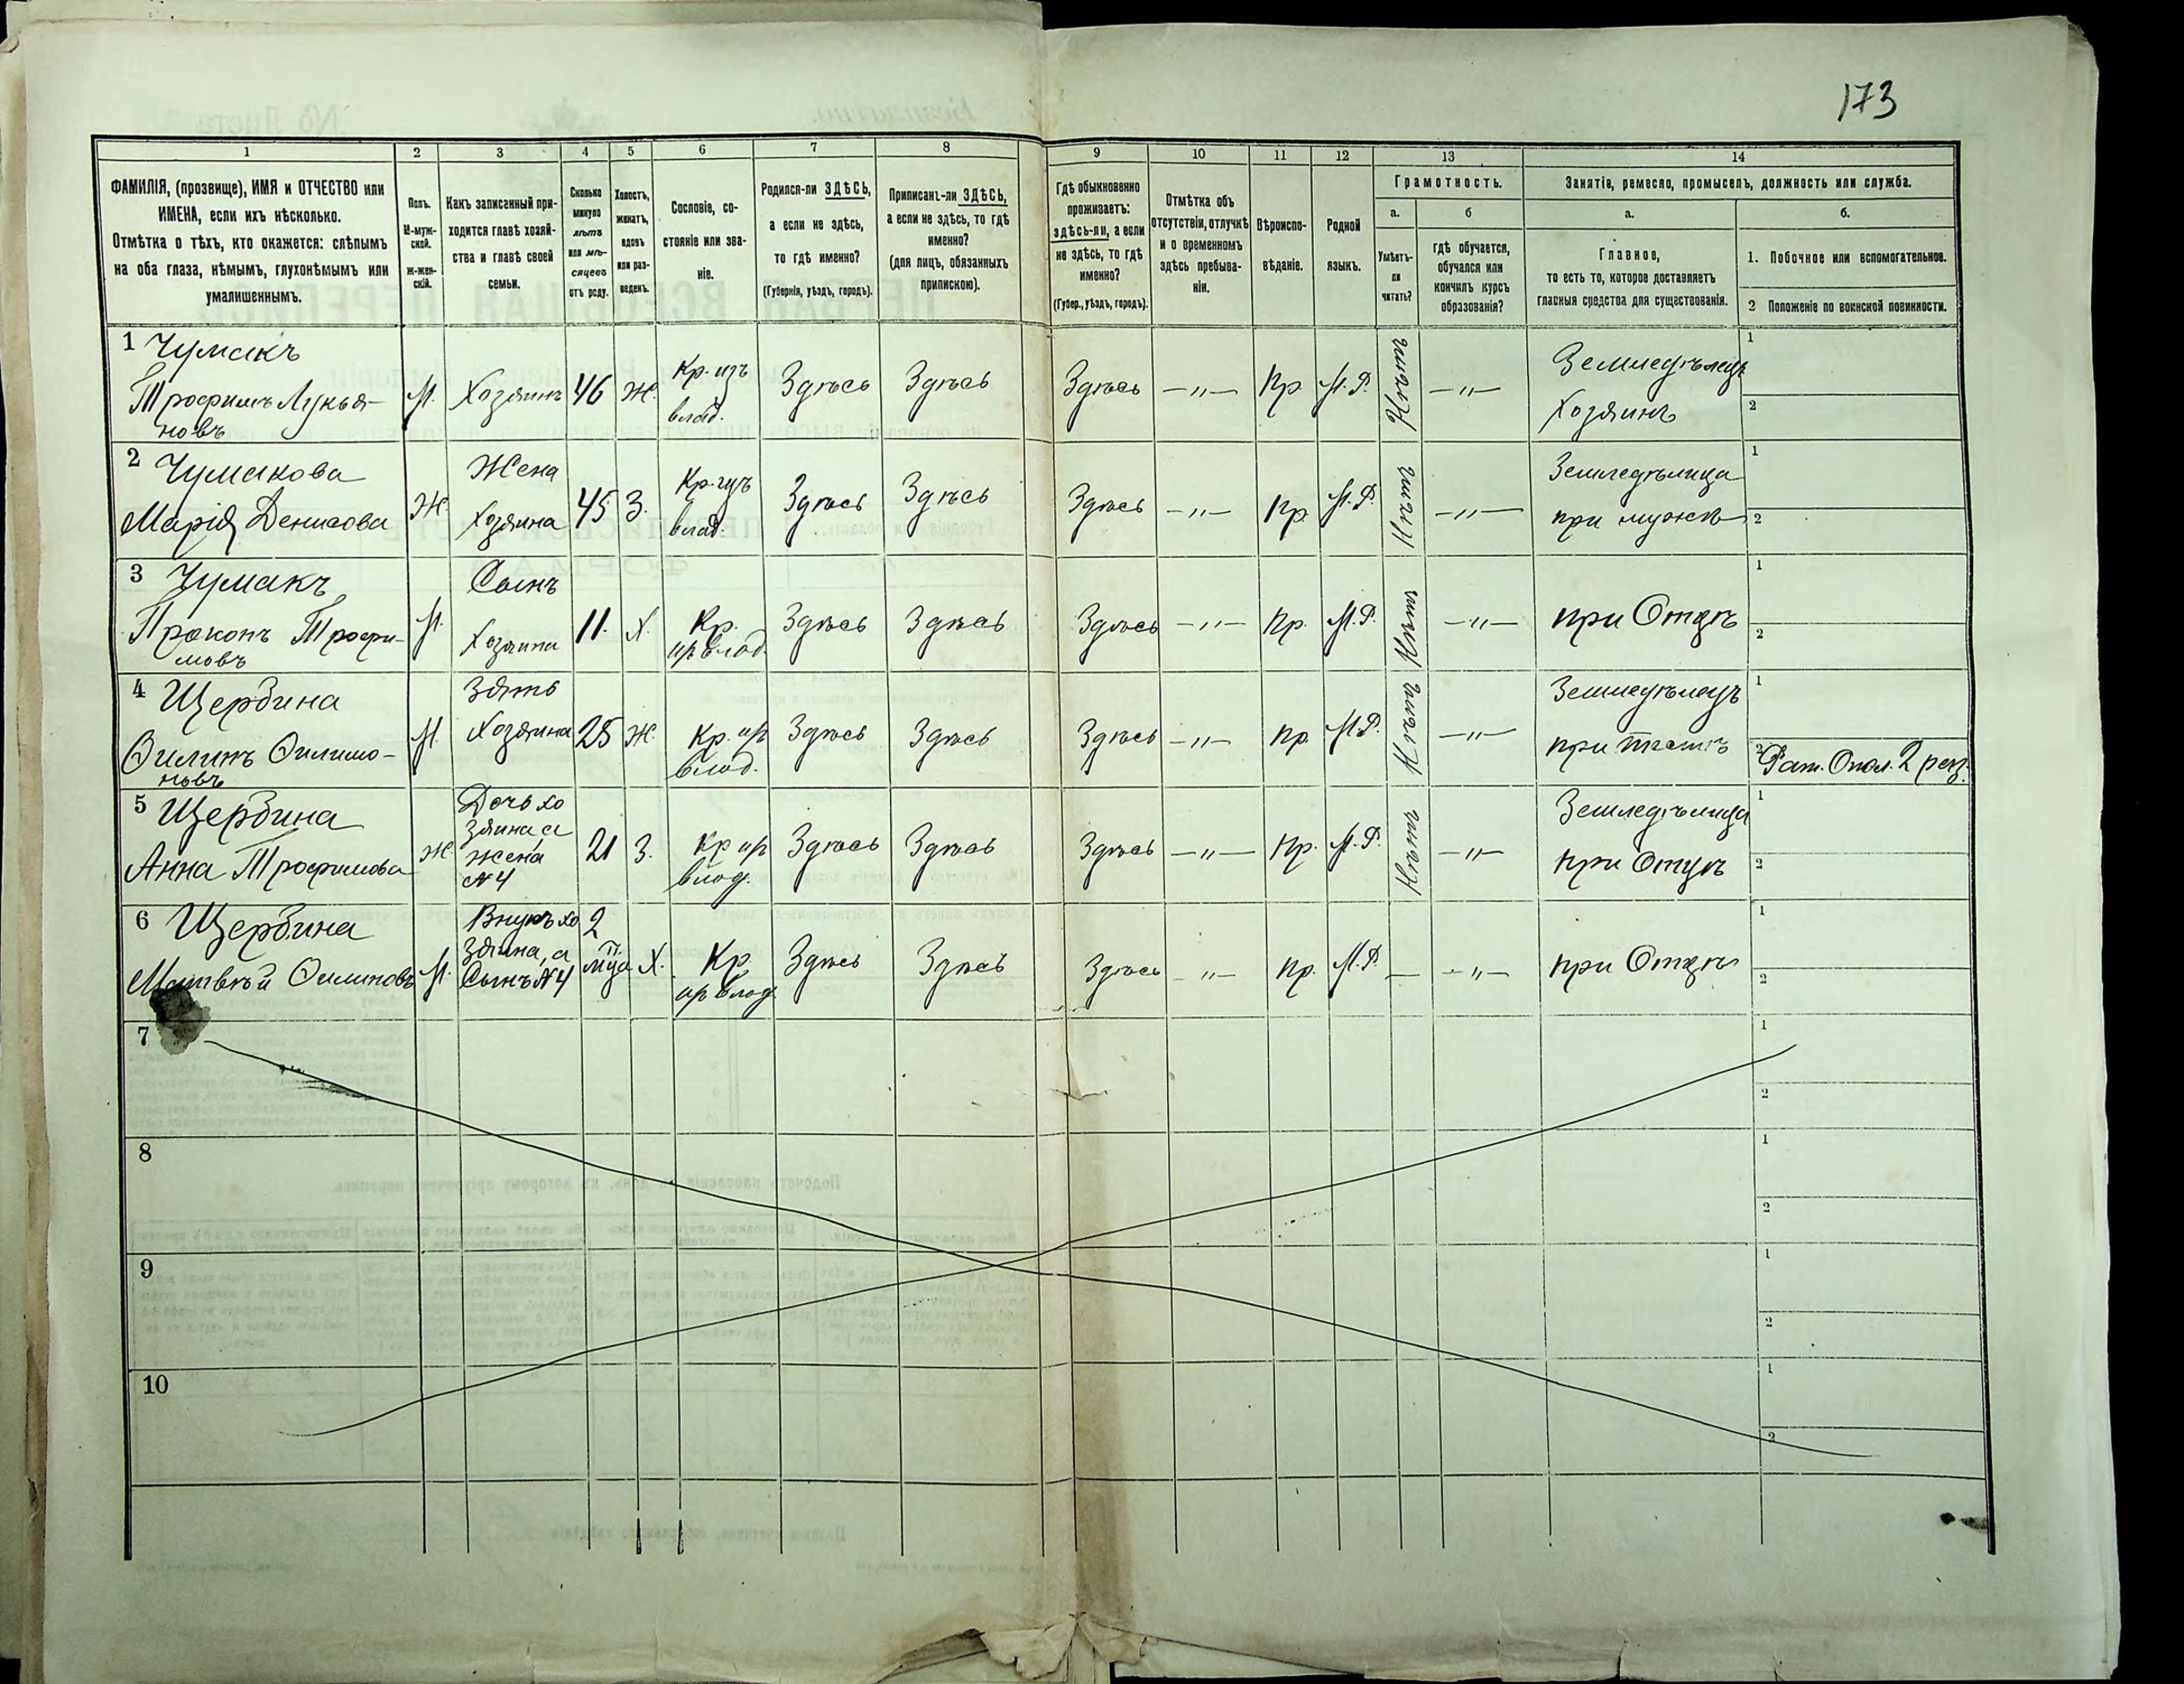 173
1
2
3
4
5
6
7
8
9
10
11
12
13
14
ФАМИЛІЯ, (прозвище), ИМЯ и ОТЧЕСТВО или
ИМЕНА, если ихъ нѣсколько.
Отмѣтка о тѣхъ, кто окажется: слѣпымъ
на оба глаза, нѣмымъ, глухонѣмымъ или
умалишеннымъ.
Полъ.
М-муж-
ской.
Ж-жен-
скій.
Какъ записанный при-
ходится главѣ хозяй-
ства и главѣ своей
семьи.
Сколько
минуло
лѣтъ
или мѣ-
сяцевъ
отъ роду.
Холостъ,
женатъ,
вдовъ
или раз-
веденъ.
Сословіе, со-
стояніе или зва-
ніе.
Родился-ли ЗДѢСЬ,
а если не здѣсь,
то гдѣ именно?
(Губернія, уѣздъ, городъ).
Приписанъ-ли ЗДѢСЬ,
а если не здѣсь, то гдѣ
именно?
(для лицъ, обязанныхъ
припискою).
Гдѣ обыкновенно
проживаетъ:
здѣсь-ли, а если
не здѣсь, то гдѣ
именно?
(Губер., уѣздъ, городъ).
Отмѣтка объ
отсутствіи, отлучкѣ
и о временномъ
здѣсь пребыва-
ніи.
Вѣроиспо-
вѣданіе.
Родной
языкъ.
Грамотность.
а.
б
Умѣетъ-
ли
читать?
гдѣ обучается,
обучался или
кончилъ курсъ
образованія?
Занятіе, ремесло, промыселъ, должность или служба.
а.
б.
Главное,
то есть то, которое доставляетъ
главныя средства для существованія.
1. Побочное или вспомогательное.
2 Положеніе по воинской повинности.
1 Чумакъ
Трофимъ Лукья-
новъ
М.
Хозяинъ
46
Ж.
Кр. изъ
влад.
Здѣсь
Здѣсь
Здѣсь
—"—
Пр
М.Р.
Нѣтъ
—"—
Земледѣлецъ
Хозяинъ
1
2
2 Чумакова
Марія Денисова
Ж.
Жена
Хозяина
45
З.
Кр. изъ
влад.
Здѣсь
Здѣсь
Здѣсь
—"—
Пр.
М.Р.
Нѣтъ
—"—
Земледѣлица
при мужѣ
1
2
3 Чумакъ
Прокопъ Трофи-
мовъ
М.
Сынъ
Хозяина
11.
Х.
Кр.
из влад.
Здѣсь
Здѣсь
Здѣсь
—"—
Пр.
М.Р.
Нѣтъ
—"—
при Отцѣ
1
2
4 Щербина
Филипъ Филимо-
новъ
М.
Зять
Хозяина
25
Ж.
Кр. из
влад.
Здѣсь
Здѣсь
Здѣсь
—"—
Пр.
М.Р.
Нѣтъ
—"—
Земледѣлецъ
при тестѣ
1
2
Рат. Опол. 2 раз.
5 Щербина
Анна Трофимова
Ж.
Дочь хо
зяина, а
жена
№4
21
З.
Кр из
влад.
Здѣсь
Здѣсь
Здѣсь
—"—
Пр.
М.Р.
Нѣтъ
—"—
Земледѣлица
при Отцѣ
1
2
6 Щербина
Матвѣй Филиповъ
М.
Внукъ хо
зяина, а
Сынъ №4
2
мца
Х.
Кр.
из влад.
Здѣсь
Здѣсь
Здѣсь
—"—
Пр.
М.Р.
—
—"—
при Отцѣ
1
2
7
1
2
8
1
2
9
1
2
10
1
2